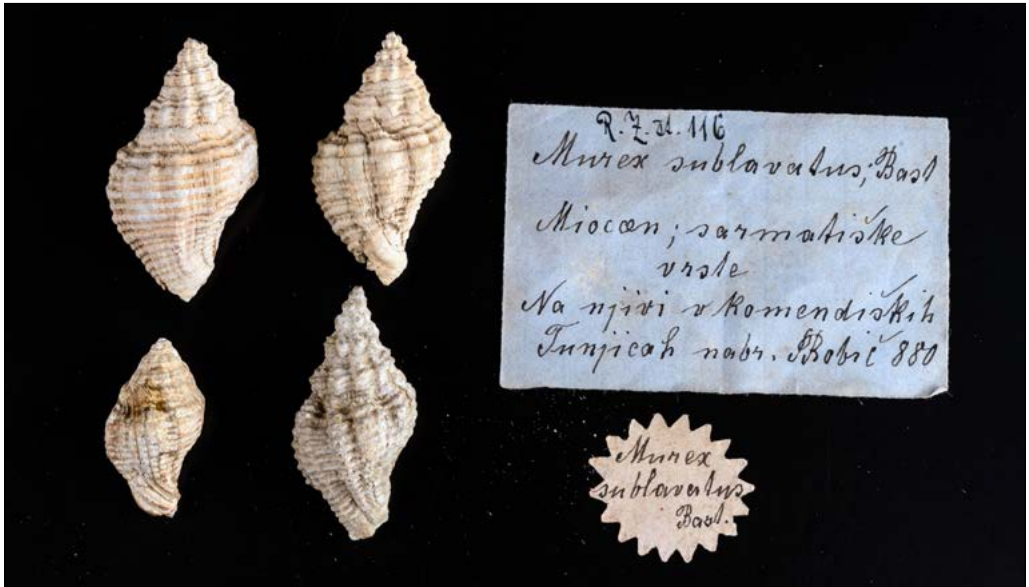 R. Z. št. 116
Murex sublavatus; Bast
Miocæn; sarmatiške
vrste
Na njivi v komendiških
Tunjicah nabr. SRobič 880
Murex
sublavatus
Bast.